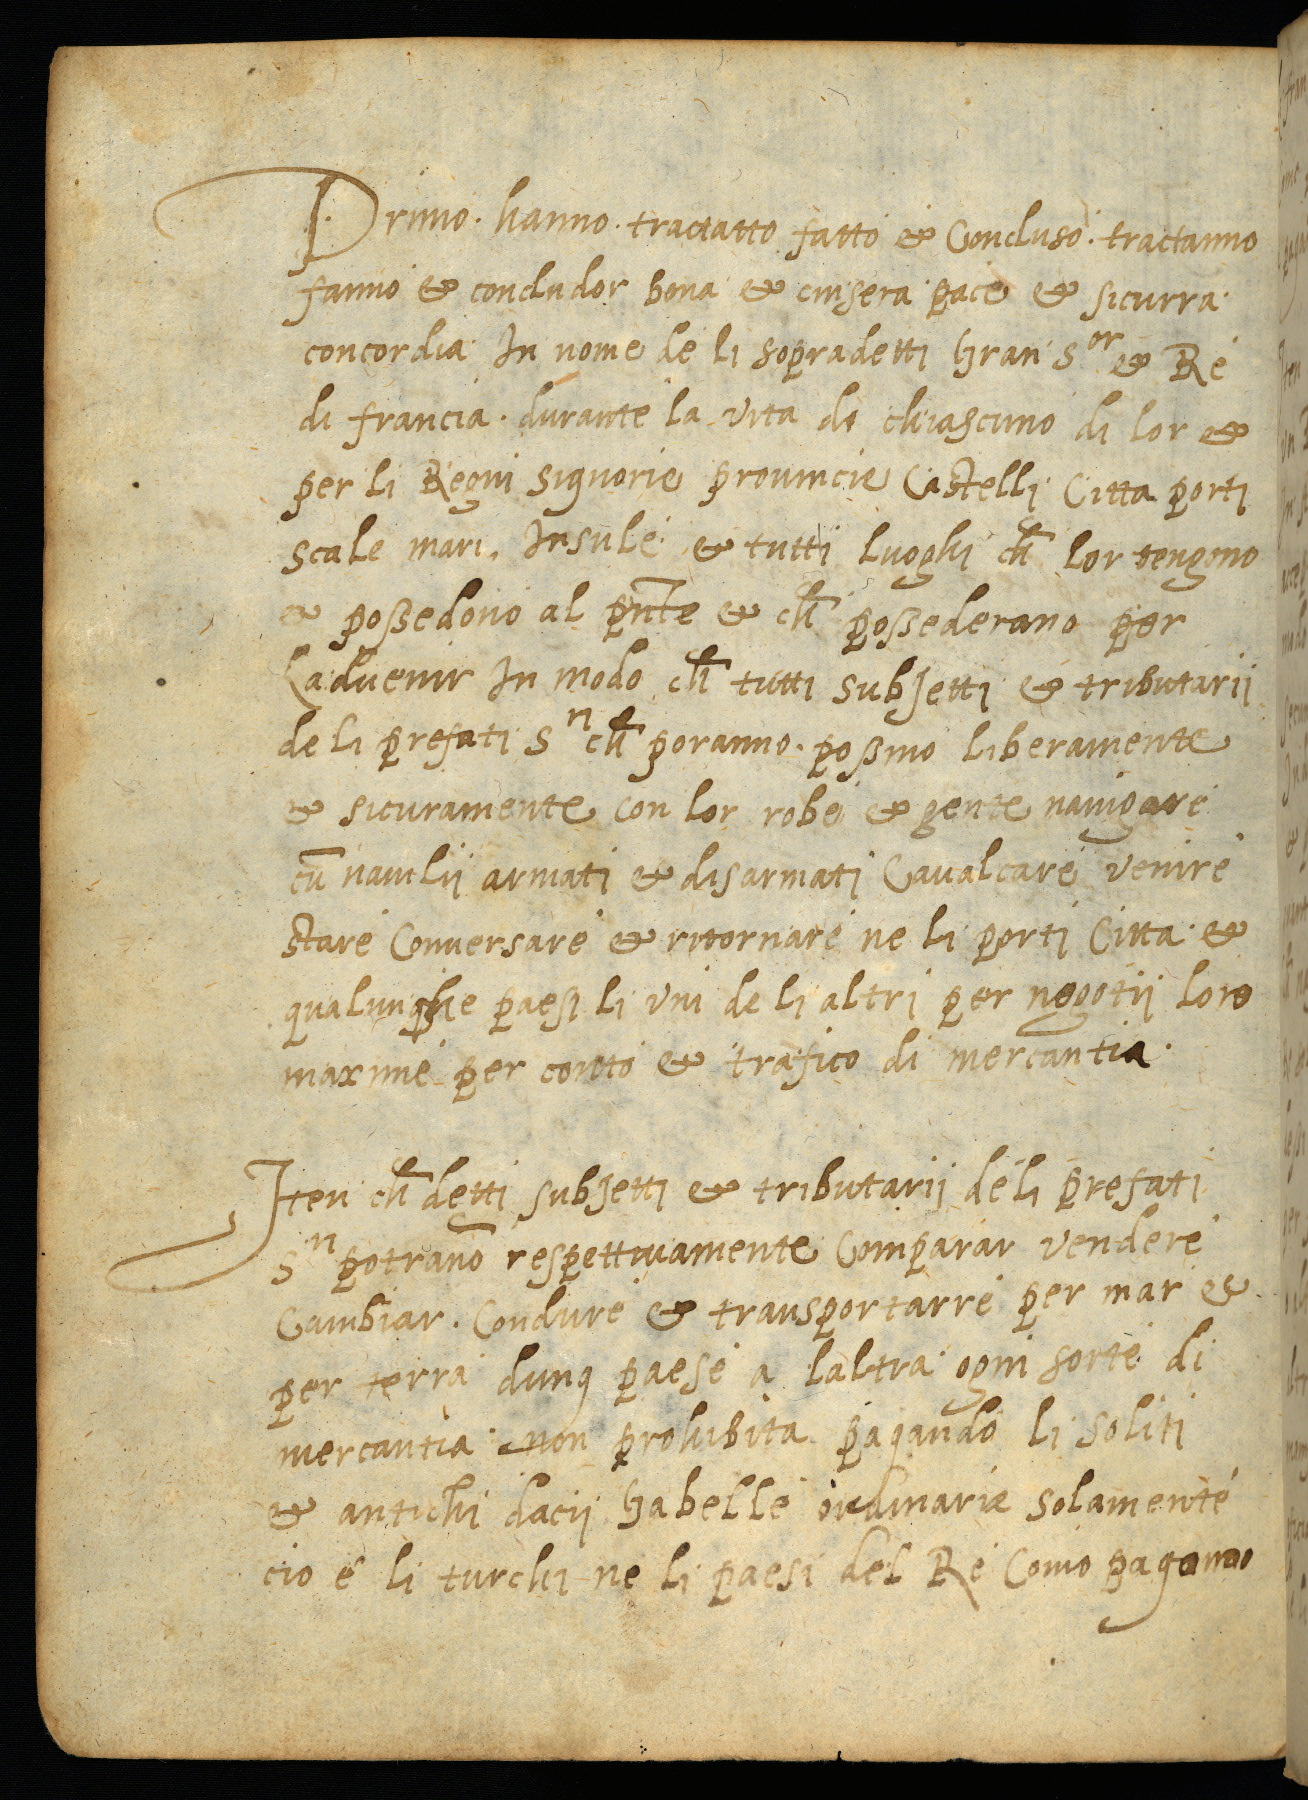 Primo. hanno. tractatto fatto & Concluso. tractanno
fanno & concludor bona & cinsera pace & sicurra
concordia In nome de li sopradetti Gran S^or & Re
di francia. durante la vita di chiascuno di lor &
per li Regni Signorie prouincie Castelli Citta porti
scale mari. Insule & tutti luoghi ch̃ lor tengono
& possedono al pñte & ch̃ possederano per
Laduenir In modo ch̃ tutti subJetti & tributarii
de li prefati S^ri ch̃ poranno. possino liberamente
& sicuramente con lor robe & gente nauigare
cũ nauilij armati & disarmati Caualcare venire
stare Conuersare & ritornare ne li porti Citta &
qualunche paesi li vni de li altri per negotij loro
maxime per conto & trafico di mercantia.
Iten ch̃ detti subJetti & tributarij de li prefati
S^ri potrano respettiuamente Comparar vendere
Cambiar. Condure & transportarre per mar &
per terra dunq paese a laltra ogni sorte di
mercantia non prohibita pagando li soliti
& antichi dacij Gabelle ordinarie solamente
cio e li turchi ne li paesi del Re Como paganno